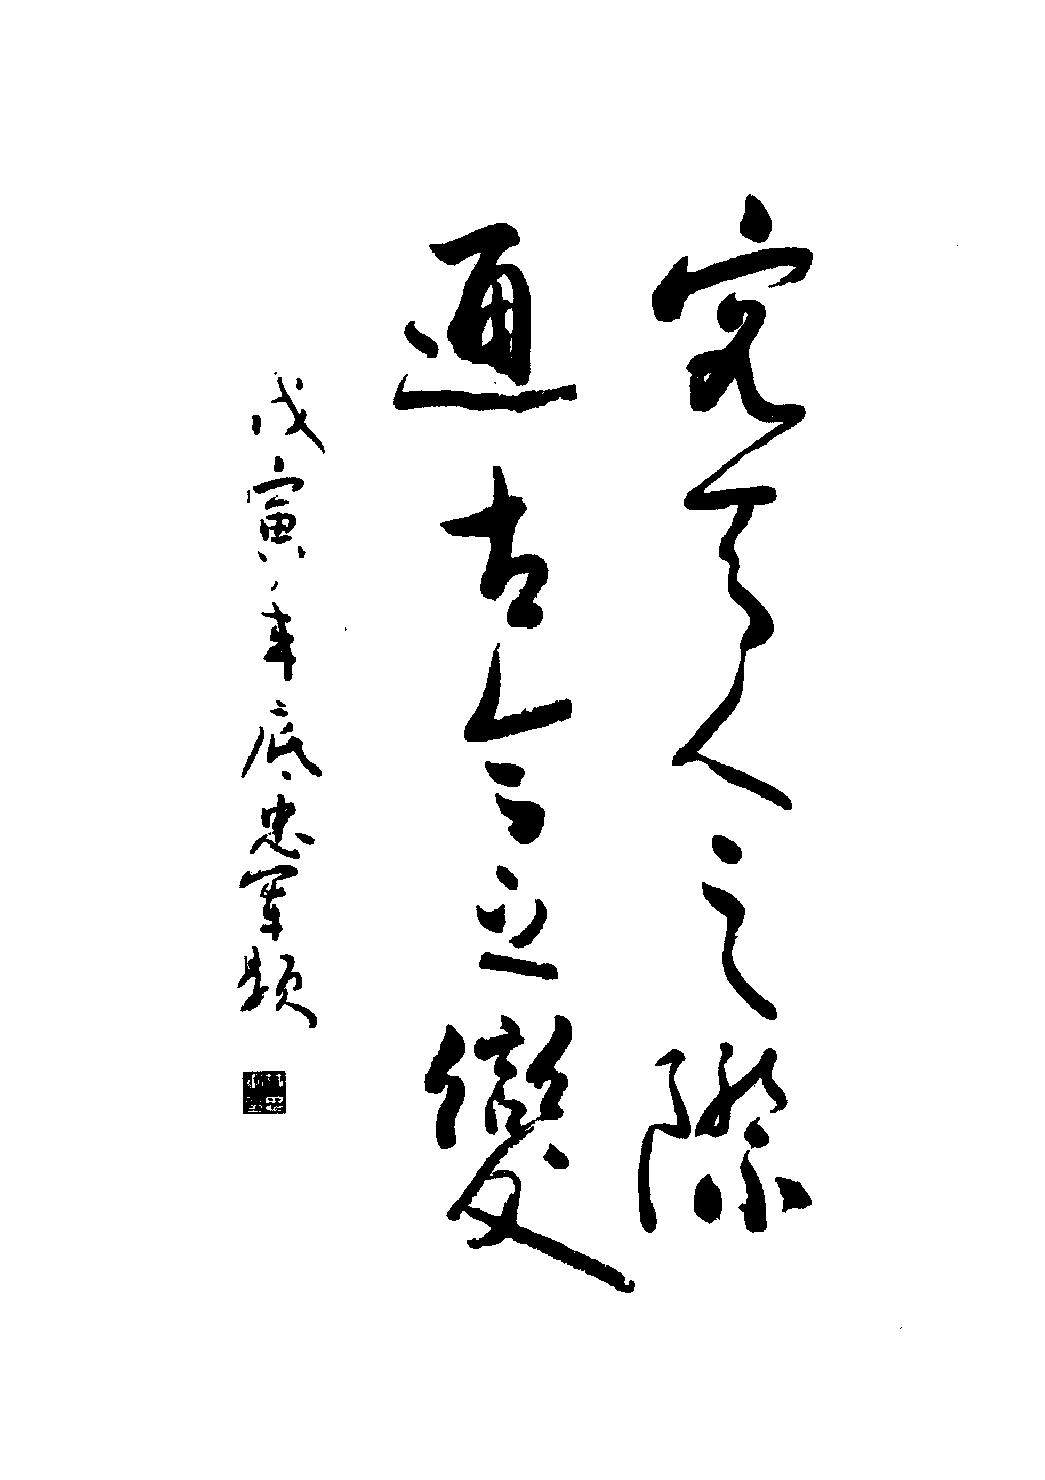 究天人之際
通古今之變
戊寅年底忠軍題